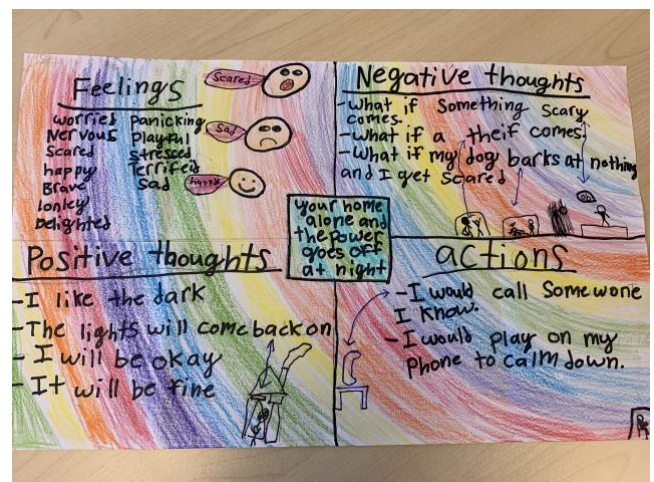 Feelings
worried panicking
Nervous Playful
Scared stressed
happy Terrifeid
Brave Sad
lonley
Delighted
Scared
Sad
happy
Negative thoughts
-What if Something Scary
comes.
-What if a theif comes.
-What if my dog barks at nothing
and I get scared
your home
alone and
the power
goes off
at night
Positive thoughts
-I like the dark
-The lights will come back on
-I will be okay
-It will be fine
actions
-I would call Somewone
I know.
-I would play on my
Phone to calm down.